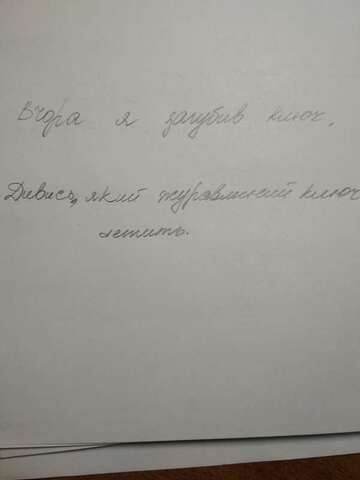 Вчора я загубив ключ.
Дивись, який журавлиний ключ
летить.